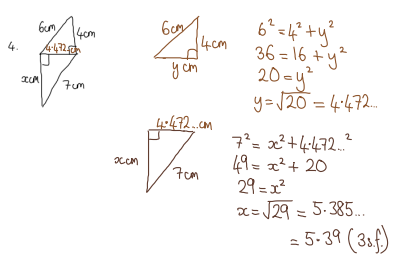 4.
6cm
4cm
4.472cm
xcm
7cm
6cm
4cm
ycm
6² = 4² + y²
36 = 16 + y²
20 = y²
y = √20 = 4.472...
4.472...cm
xcm
7cm
7² = x² + 4.472...²
49 = x² + 20
29 = x²
x = √29 = 5.385...
= 5.39 (3s.f.)